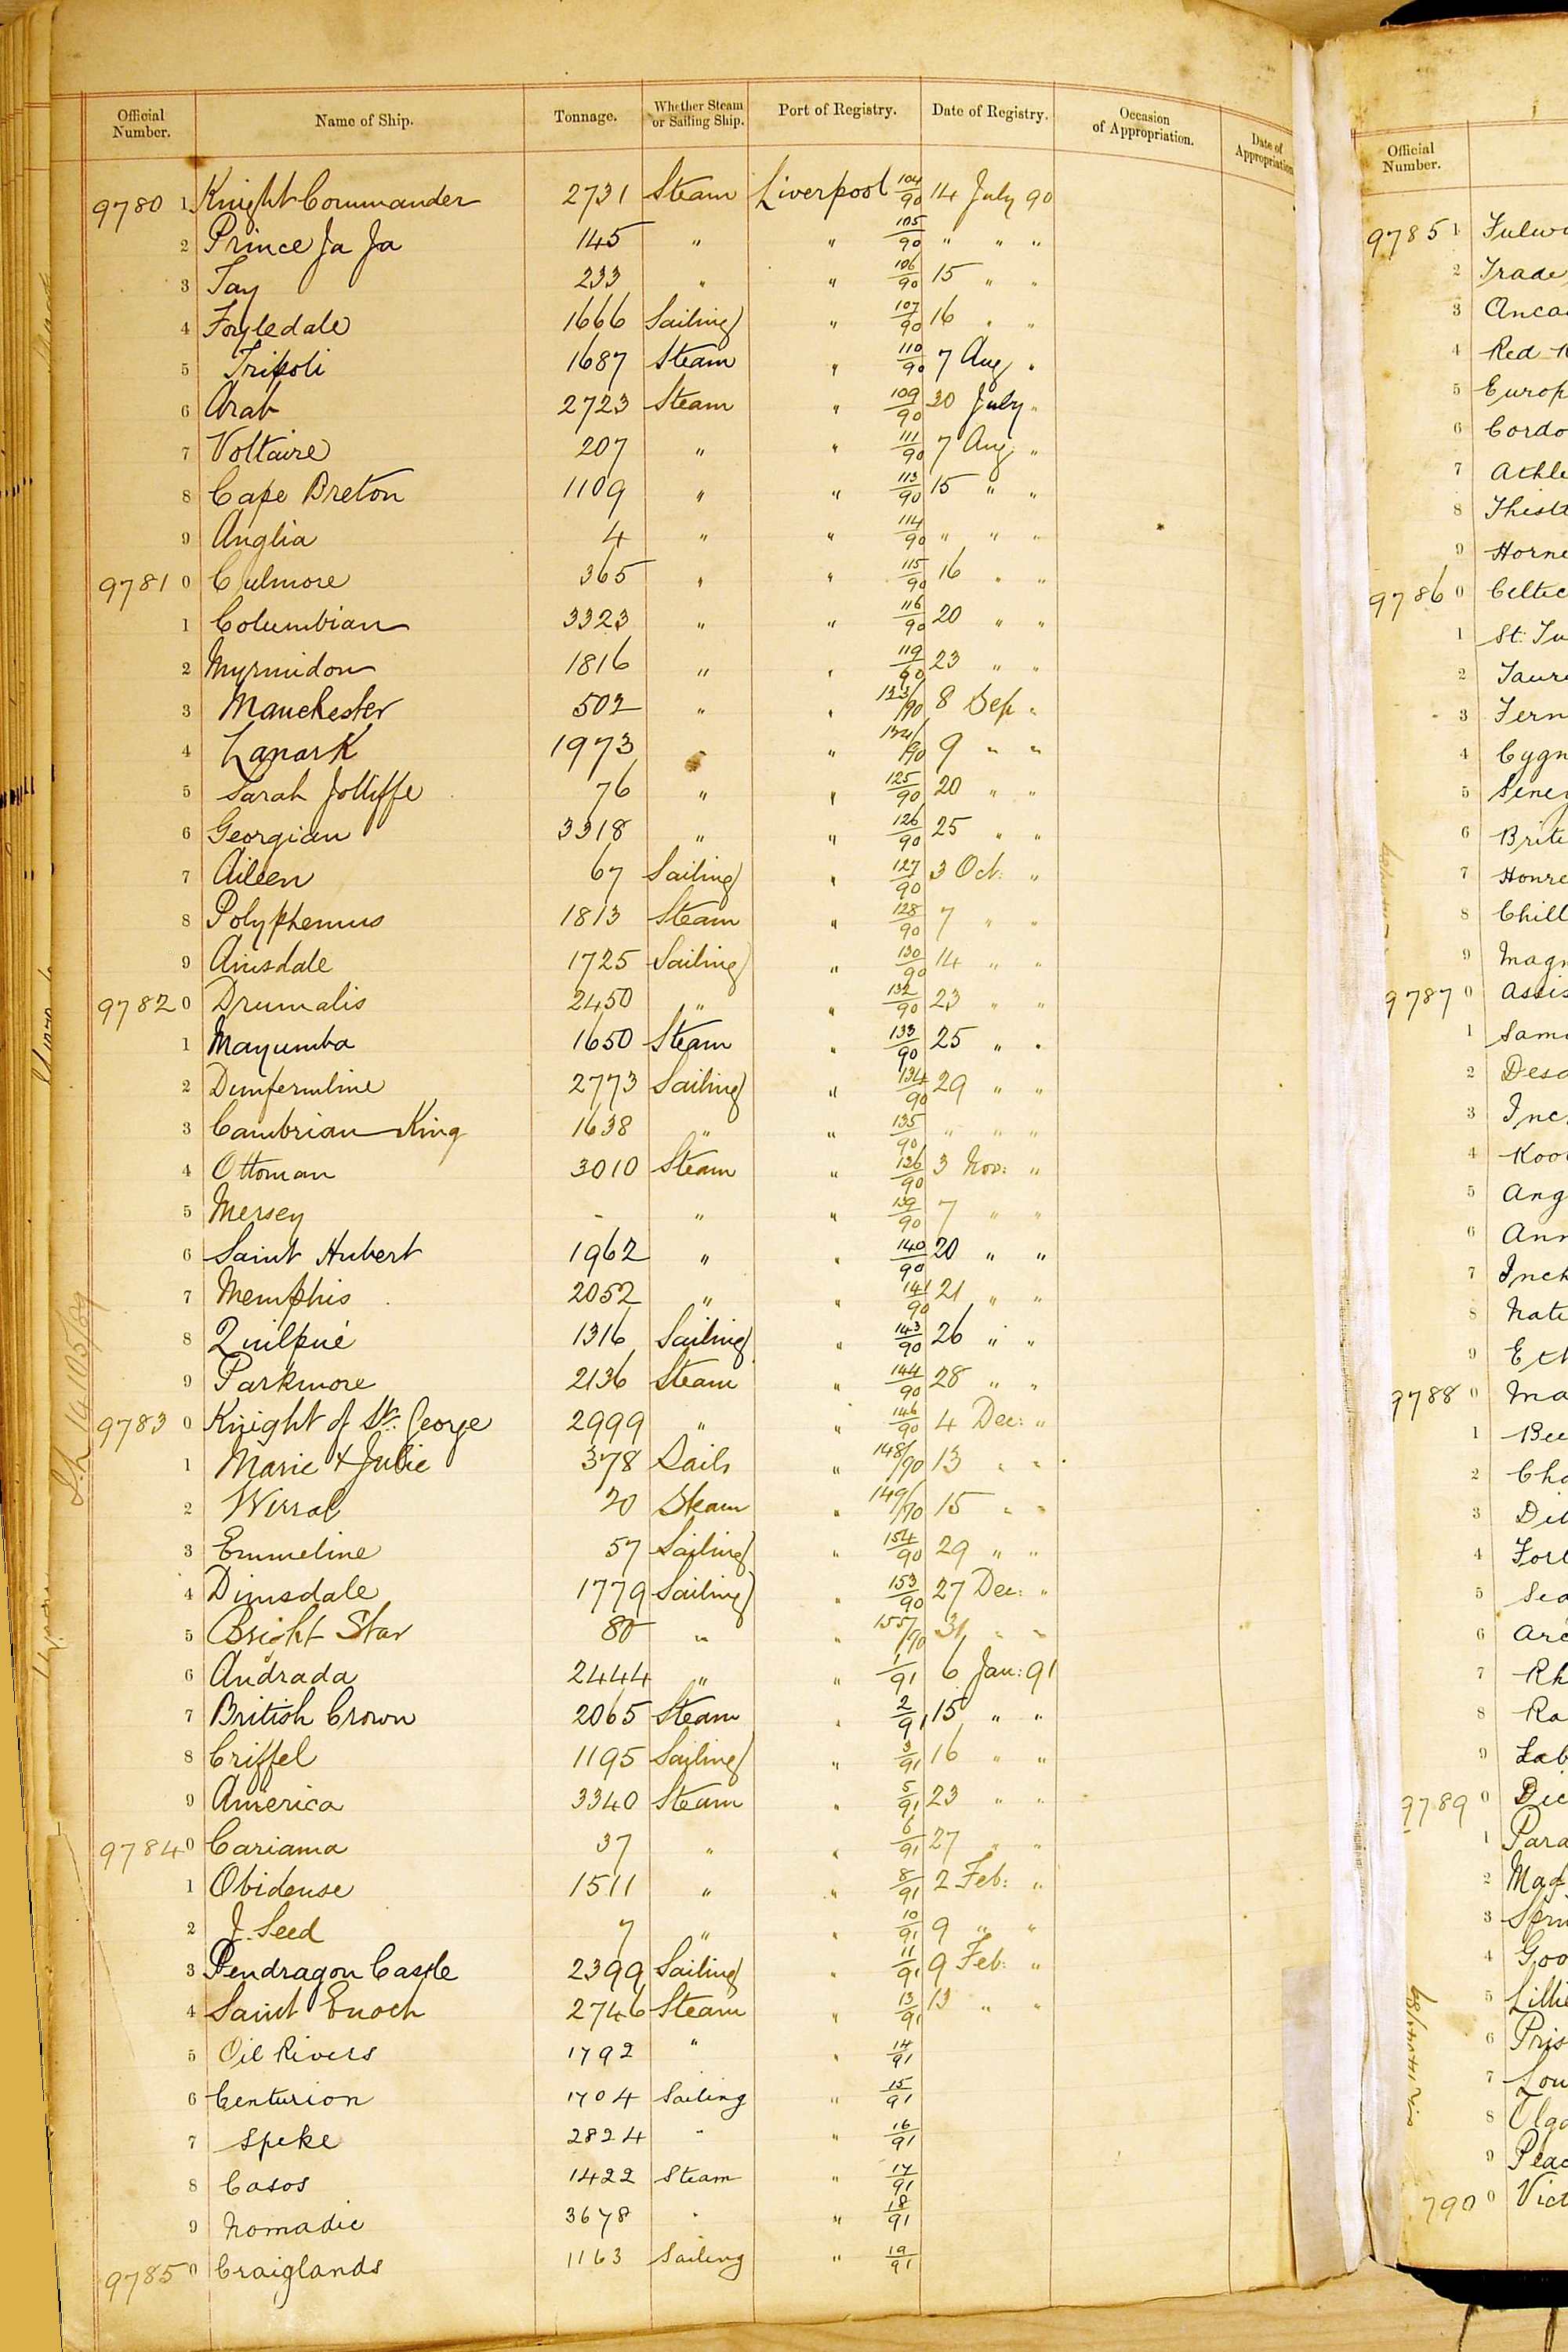 Official Number. Name of Ship. Tonnage. Whether Steam or Sailing Ship. Port of Registry. Date of Registry. Occasion of Appropriation. Date of Appropriation
9780 1 Knight Commander 2731 Steam Liverpool 104/90 14 July 90
2 Prince Ja Ja 145 " " 105/90 " " "
3 Tay 233 " " 106/90 15 " "
4 Foyledale 1666 Sailing " 107/90 16 " "
5 Tripoli 1687 Steam " 110/90 7 Aug "
6 Arab 2723 Steam " 109/90 30 July "
7 Voltaire 207 " " 111/90 7 Aug "
8 Cape Breton 1109 " " 113/90 15 " "
9 Anglia 4 " " 114/90 " " "
9781 0 Culmore 365 " " 115/90 16 " "
1 Columbian 3323 " " 116/90 20 " "
2 Myrmidon 1816 " " 119/90 23 " "
3 Manchester 502 " " 123/90 8 Sep "
4 Lanark 1973 " " 124/90 9 " "
5 Sarah Jolliffe 76 " " 125/90 20 " "
6 Georgian 3318 " " 126/90 25 " "
7 Aileen 67 Sailing " 127/90 3 Oct: "
8 Polyphemus 1813 Steam " 128/90 7 " "
9 Ainsdale 1725 Sailing " 130/90 14 " "
9782 0 Drumalis 2450 " " 132/90 23 " "
1 Mayumba 1650 Steam " 133/90 25 " "
2 Dunfermline 2773 Sailing " 134/90 29 " "
3 Cambrian King 1638 " " 135/90 " " "
4 Ottoman 3010 Steam " 136/90 3 Nov: "
5 Mersey - " " 139/90 7 " "
6 Saint Hubert 1962 " " 140/90 20 " "
7 Memphis 2052 " " 141/90 21 " "
8 Quilpué 1316 Sailing " 143/90 26 " "
9 Parkmore 2136 Steam " 144/90 28 " "
9783 0 Knight of St. George 2999 " " 146/90 4 Dec: "
1 Marie & Julie 378 Sails " 148/90 13 " "
2 Wirral 20 Steam " 149/90 15 " "
3 Emmeline 57 Sailing " 154/90 29 " "
4 Dimsdale 1779 Sailing " 153/90 27 Dec: "
5 Bright Star 80 " " 155/90 31 " "
6 Andrada 2444 " " 1/91 6 Jan: 91
7 British Crown 2065 Steam " 2/91 15 " "
8 Criffel 1195 Sailing " 3/91 16 " "
9 America 3340 Steam " 5/91 23 " "
9784 0 Cariama 37 " " 6/91 27 " "
1 Obidense 1511 " " 8/91 2 Feb: "
2 J. Seed 7 " " 10/91 9 " "
3 Pendragon Castle 2399 Sailing " 11/91 9 Feb: "
4 Saint Enoch 2746 Steam " 13/91 13 " "
5 Oil Rivers 1792 " " 14/91
6 Centurion 1704 Sailing " 15/91
7 Speke 2824 " " 16/91
8 Casos 1422 Steam " 17/91
9 Nomadic 3678 " " 18/91
9785 0 Craiglands 1163 Sailing " 19/91
Official Number.
9785 1
2 Trade
3
4 Red
5
6
7
8
9
9786 0 Celtic
1 St.
2
3
4
5
6
7
8
9
9787 0
1
2
3
4
5
6
7
8
9
9788 0
1
2
3
4
5
6
7
8
9
9789 0
1
2
3
4
5
6
7
8
9
790 0